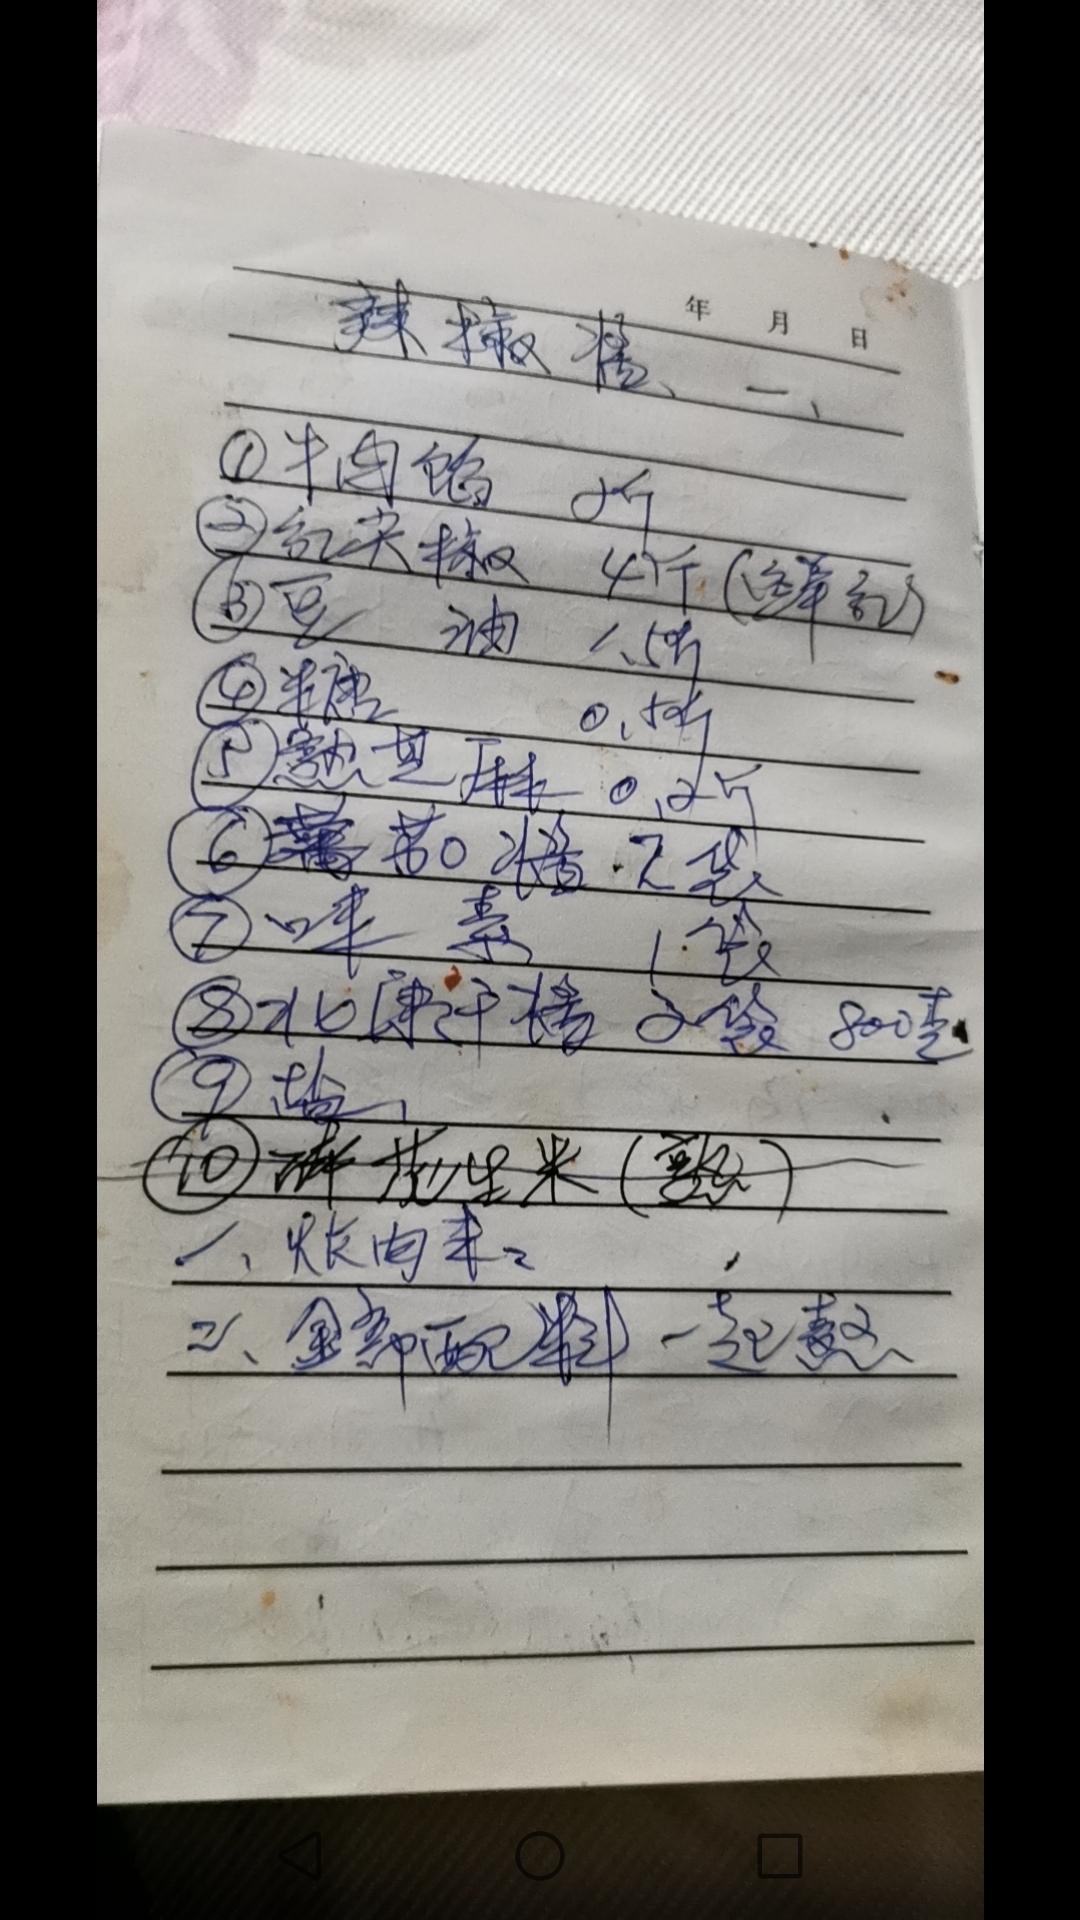 年 月 日
辣椒酱、一、
①牛肉馅 2斤
②红尖椒 4斤(鲜红)
③豆 油 1.5斤
④糖 0.5斤
⑤熟芝麻 0.2斤
⑥蕃茄酱 2袋
⑦味素 1袋
⑧北康干酱 2袋 800克
⑨盐、
⑩碎花生米(熟)
一、炸肉末:
二、全部配料一起熬